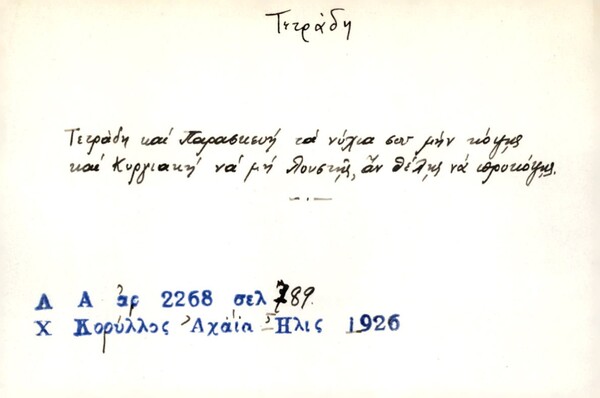 Τετράδη
Τετράδη καί Παρασκευή τά νύχια σου μήν κόψῃς
καί Κυργιακή νά μή λουστῇς, ἄν θέλῃς νά προκόψῃς.
Λ Α ἀρ 2268 σελ 789.
Χ Κορύλλος Ἀχαΐα Ἠλις 1926